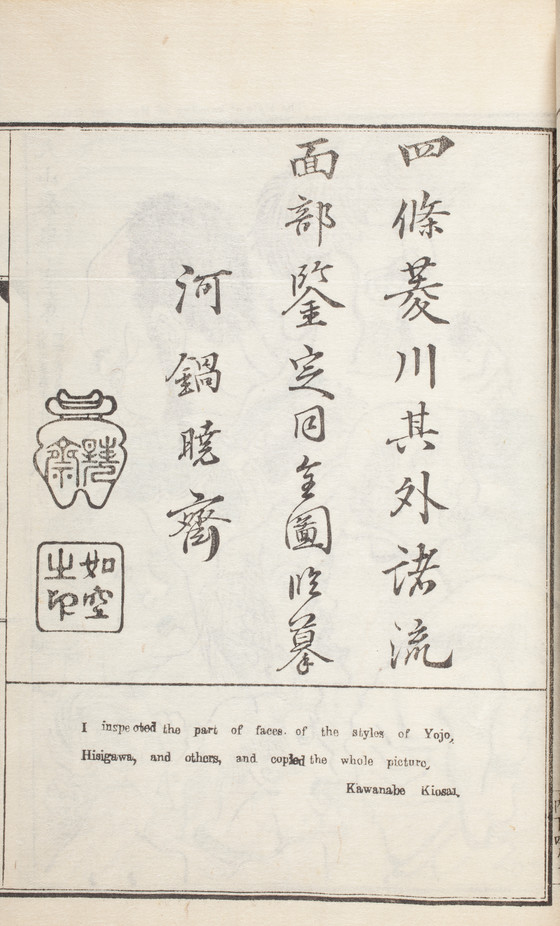 四條菱川其外諸流
面部鑒定同全圖臨摹
河鍋曉齋
曉齋
如空之印
I inspected the part of faces. of the styles of Yojo,
Hisigawa, and others, and copied the whole picture,
Kawanabe Kiosai.